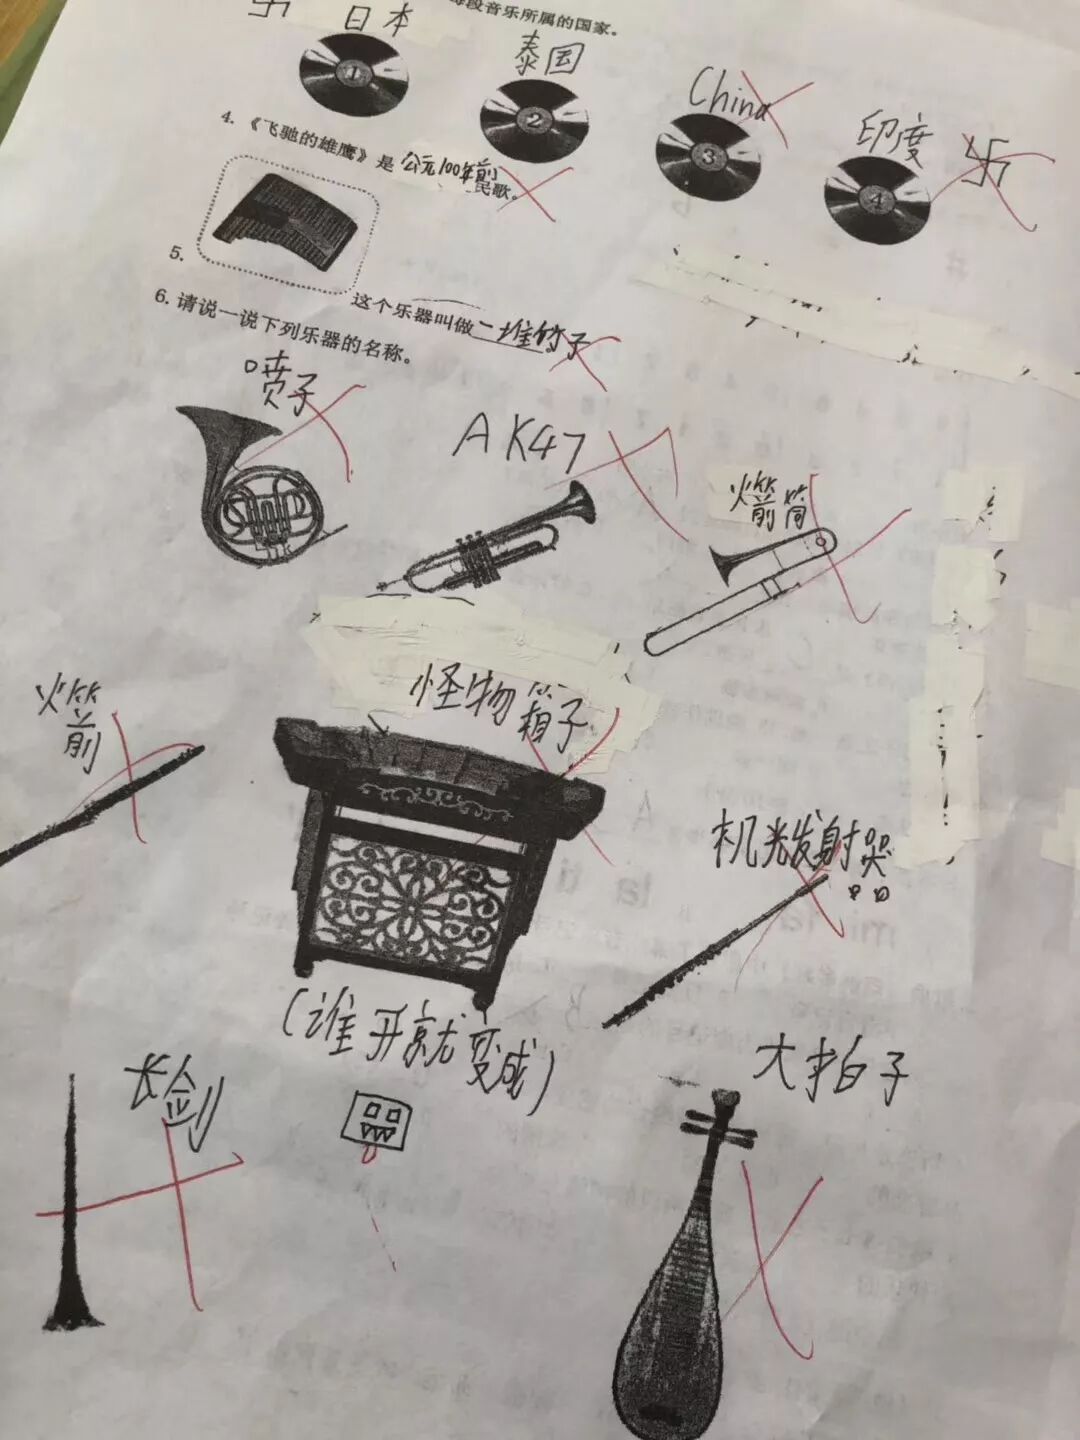 每段音乐所属的国家。
卐 日本 泰国 China 印度 卐
1 2 3 4
4.《飞驰的雄鹰》是公元100年前民歌。
5. 这个乐器叫做一堆竹子
6. 请说一说下列乐器的名称。
喷子 AK47 火箭筒
火箭 怪物箱子 机关发射器
(谁开就变成)
长剑 大拍子